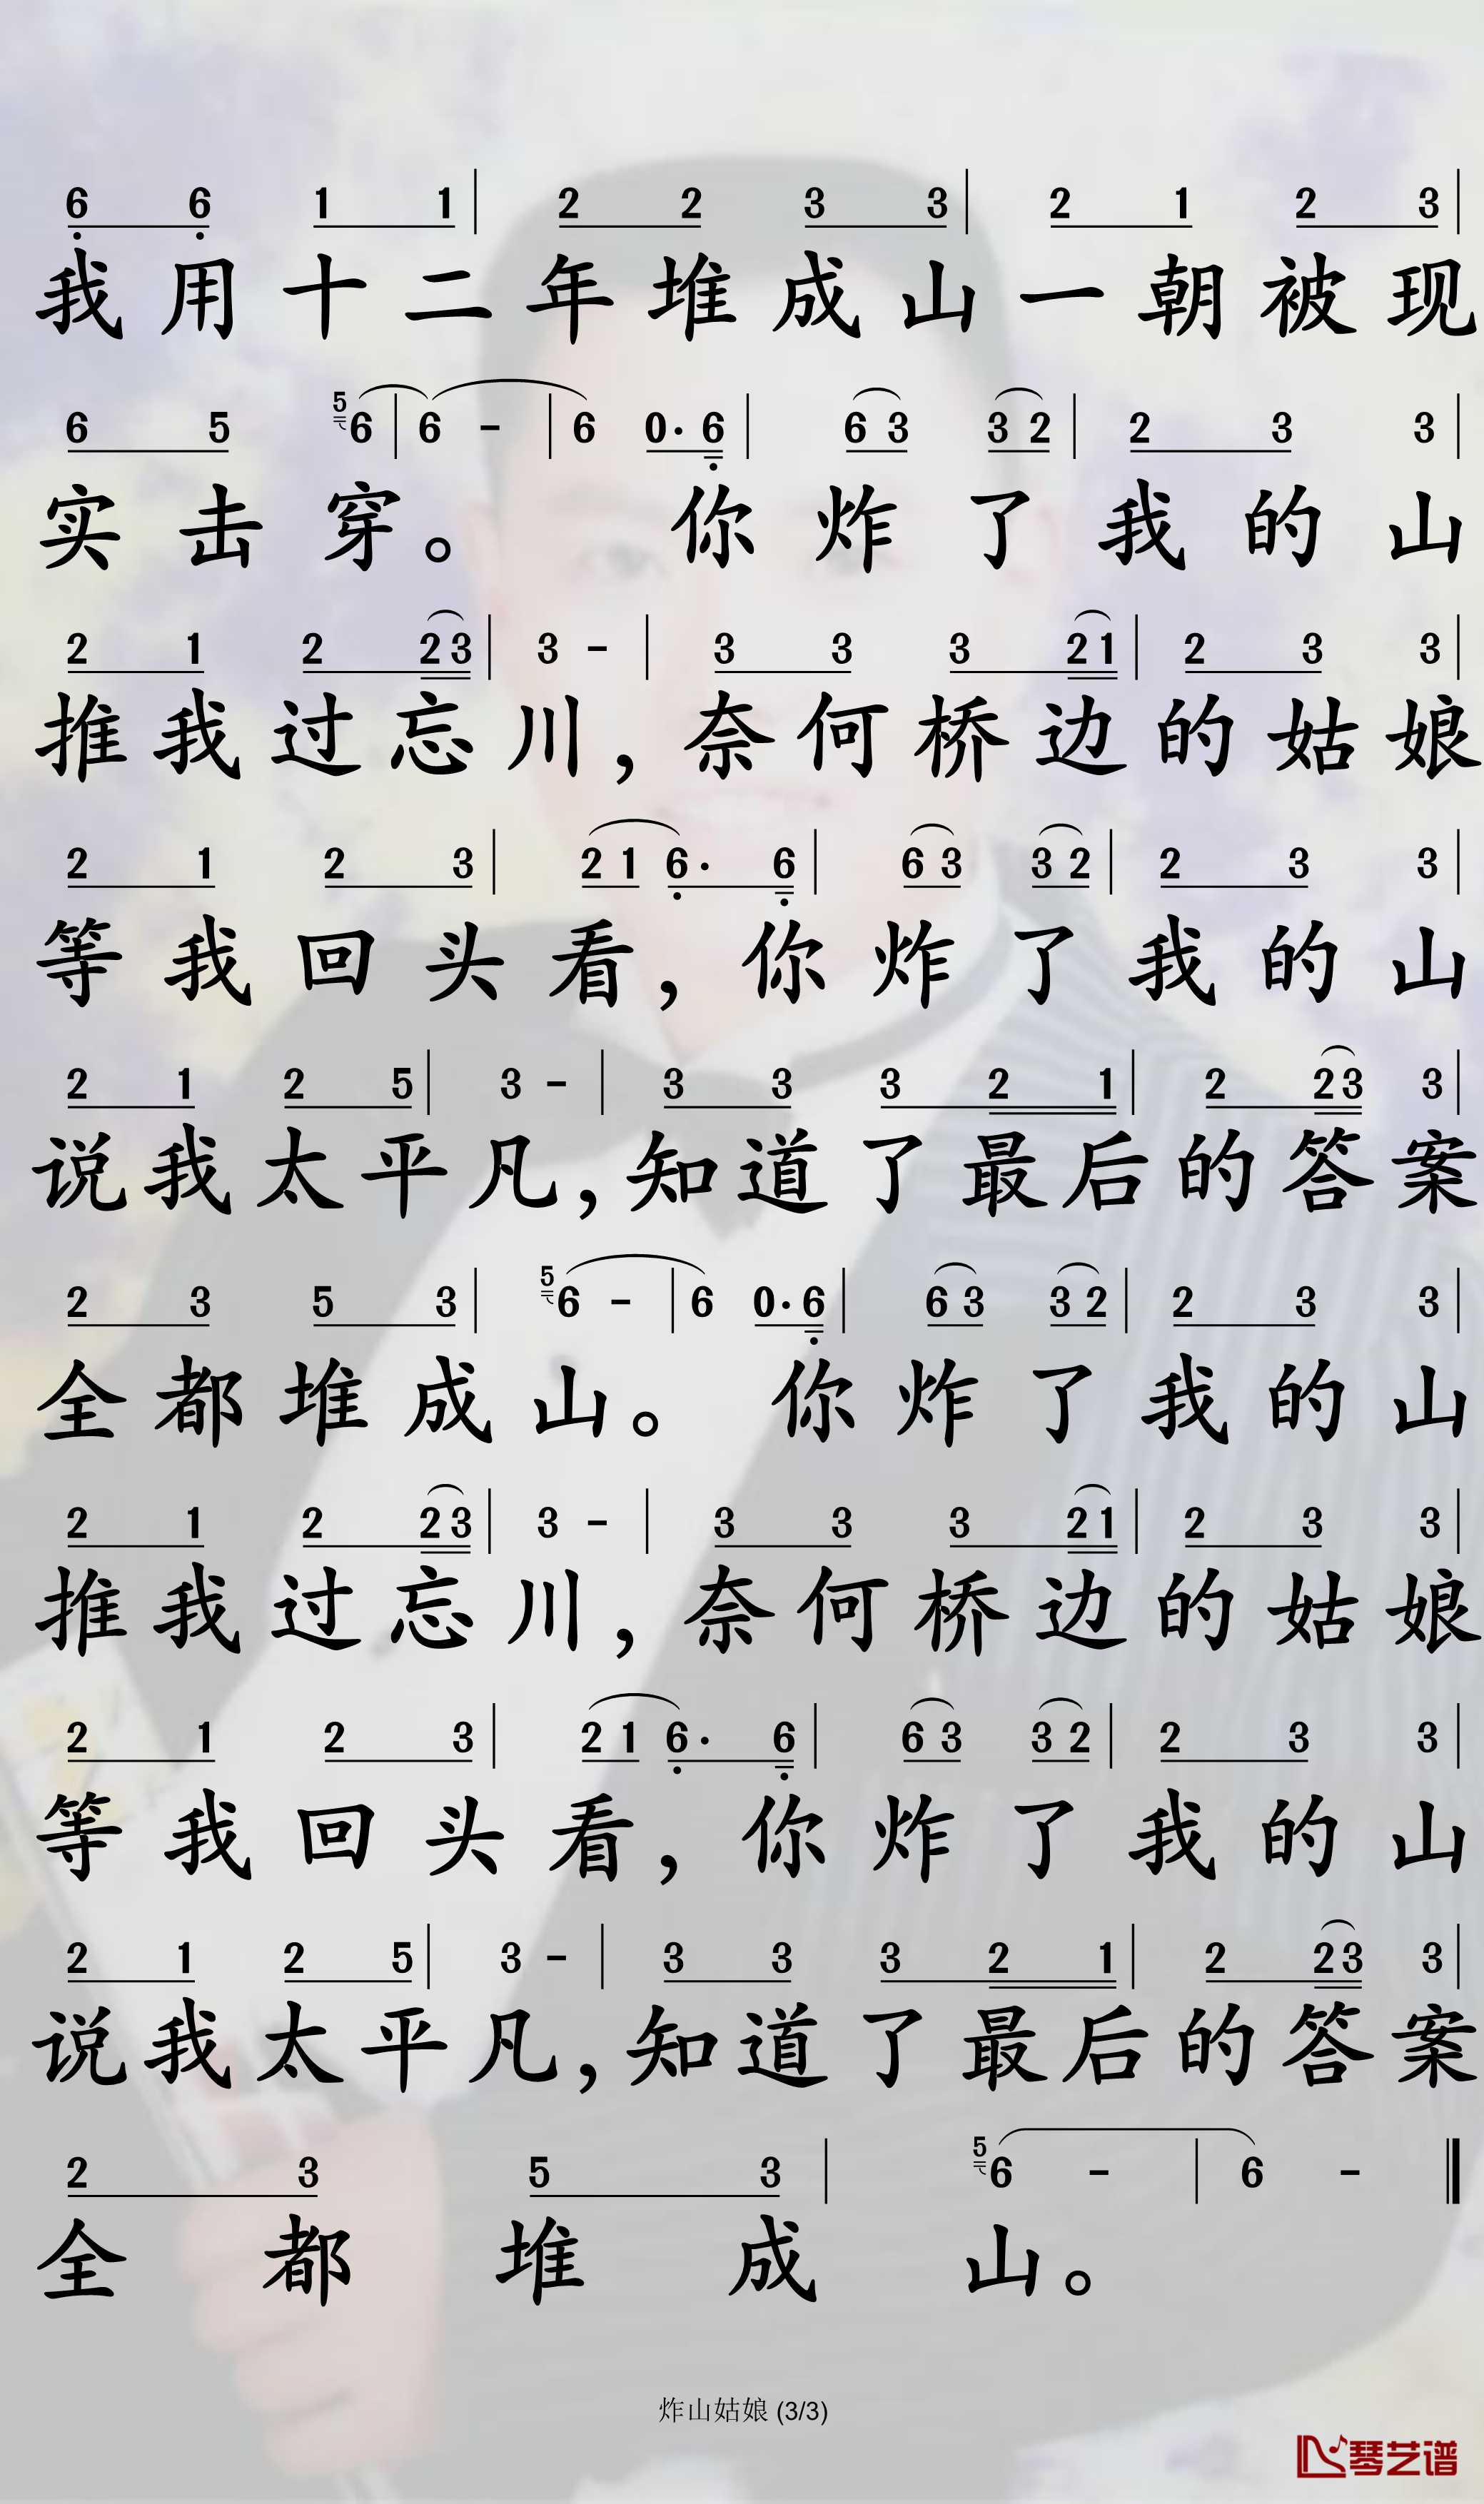 6 6 1 1 | 2 2 3 3 | 2 1 2 3 |
我用十二年堆成山一朝被现
6 5 5 6 | 6 - | 6 0· 6 | 6 3 3 2 | 2 3 3 |
实击穿。你炸了我的山
2 1 2 2 3 | 3 - | 3 3 3 2 1 | 2 3 3 |
推我过忘川,奈何桥边的姑娘
2 1 2 3 | 2 1 6· 6 | 6 3 3 2 | 2 3 3 |
等我回头看,你炸了我的山
2 1 2 5 | 3 - | 3 3 3 2 1 | 2 2 3 3 |
说我太平凡,知道了最后的答案
2 3 5 3 | 5 6 - | 6 0· 6 | 6 3 3 2 | 2 3 3 |
全都堆成山。你炸了我的山
2 1 2 2 3 | 3 - | 3 3 3 2 1 | 2 3 3 |
推我过忘川,奈何桥边的姑娘
2 1 2 3 | 2 1 6· 6 | 6 3 3 2 | 2 3 3 |
等我回头看,你炸了我的山
2 1 2 5 | 3 - | 3 3 3 2 1 | 2 2 3 3 |
说我太平凡,知道了最后的答案
2 3 5 3 | 5 6 - | 6 - ‖
全都堆成山。
炸山姑娘 (3/3)
琴艺谱